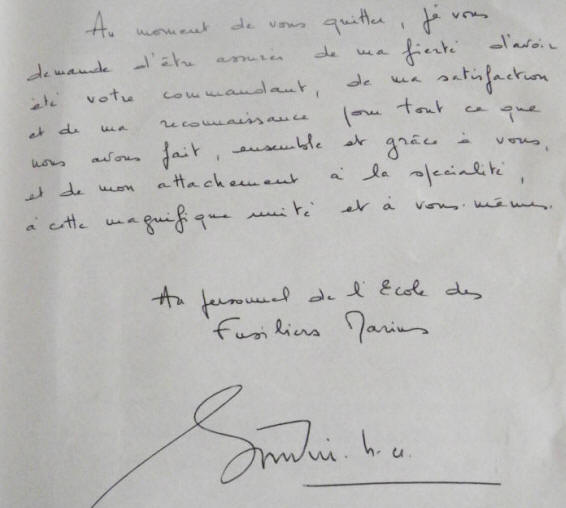 Au moment de vous quitter, je vous
demande d'être assurés de ma fierté d'avoir
été votre commandant, de ma satisfaction
et de ma reconnaissance pour tout ce que
nous avons fait, ensemble et grâce à vous,
et de mon attachement à la spécialité,
à cette magnifique unité et à vous-mêmes.
Au personnel de l'Ecole des
Fusiliers Marins